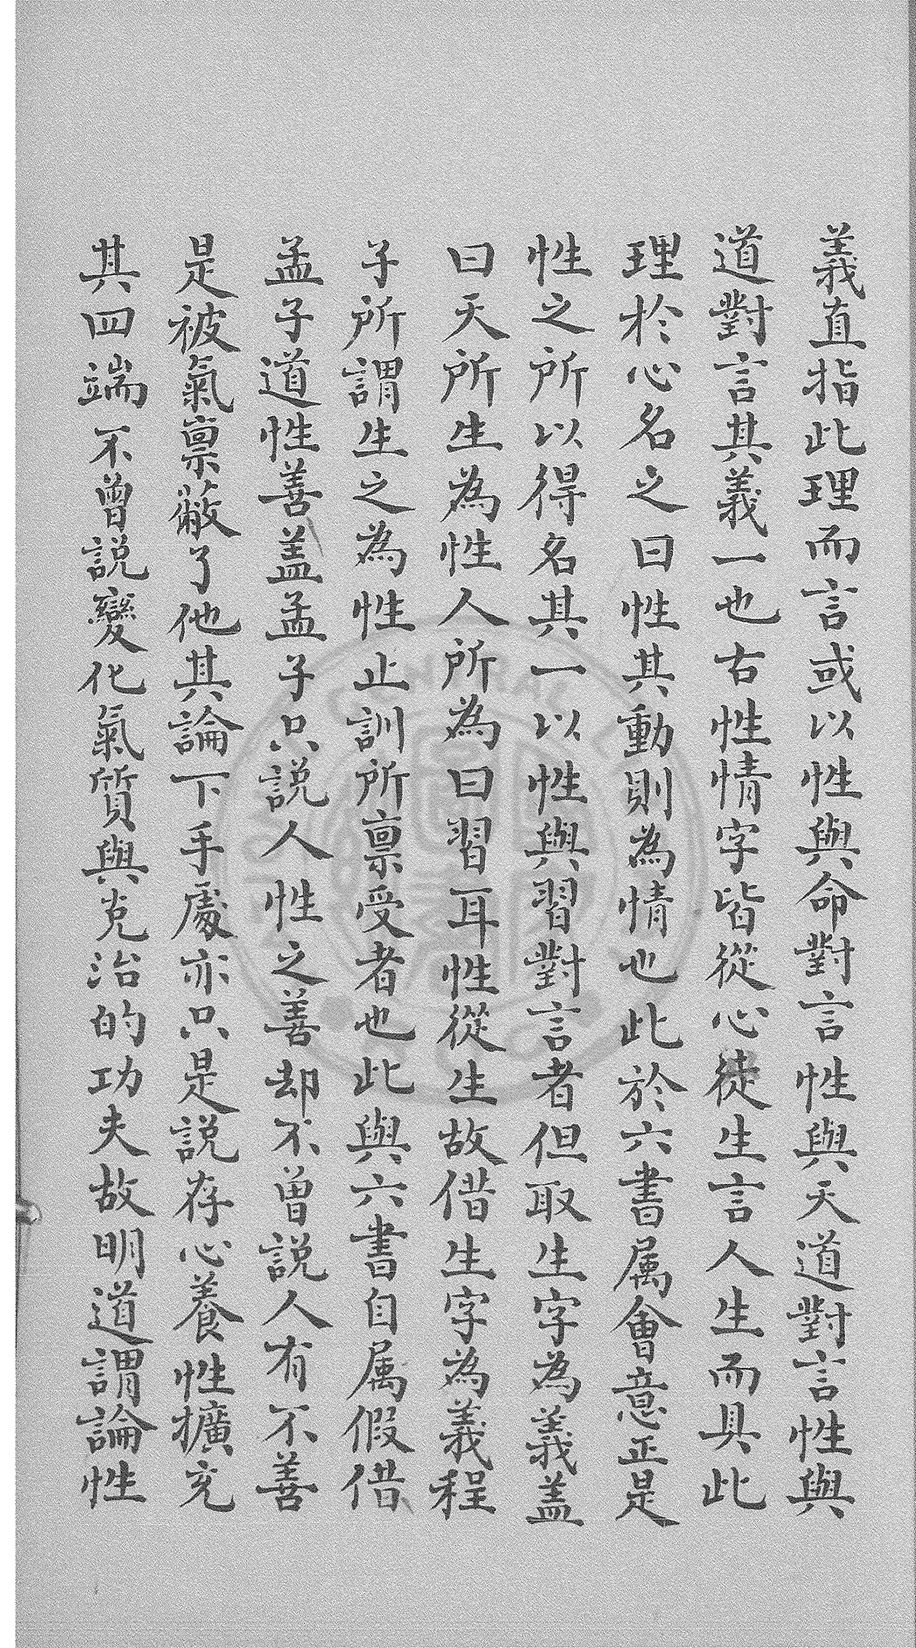 義直指此理而言或以性與命對言性與天道對言性與
道對言其義一也右性情字皆從心徒生言人生而具此
理於心名之曰性其動則為情也此於六書属會意正是
性之所以得名其一以性與習對言者但取生字為義盖
曰天所生為性人所為曰習耳性從生故借生字為義程
子所謂生之為性止訓所禀受者也此與六書自属假借
孟子道性善盖孟子只説人性之善却不曾説人有不善
是被氣禀蔽了他其論下手處亦只是説存心養性擴充
其四端不曾説變化氣質與克治的功夫故明道謂論性